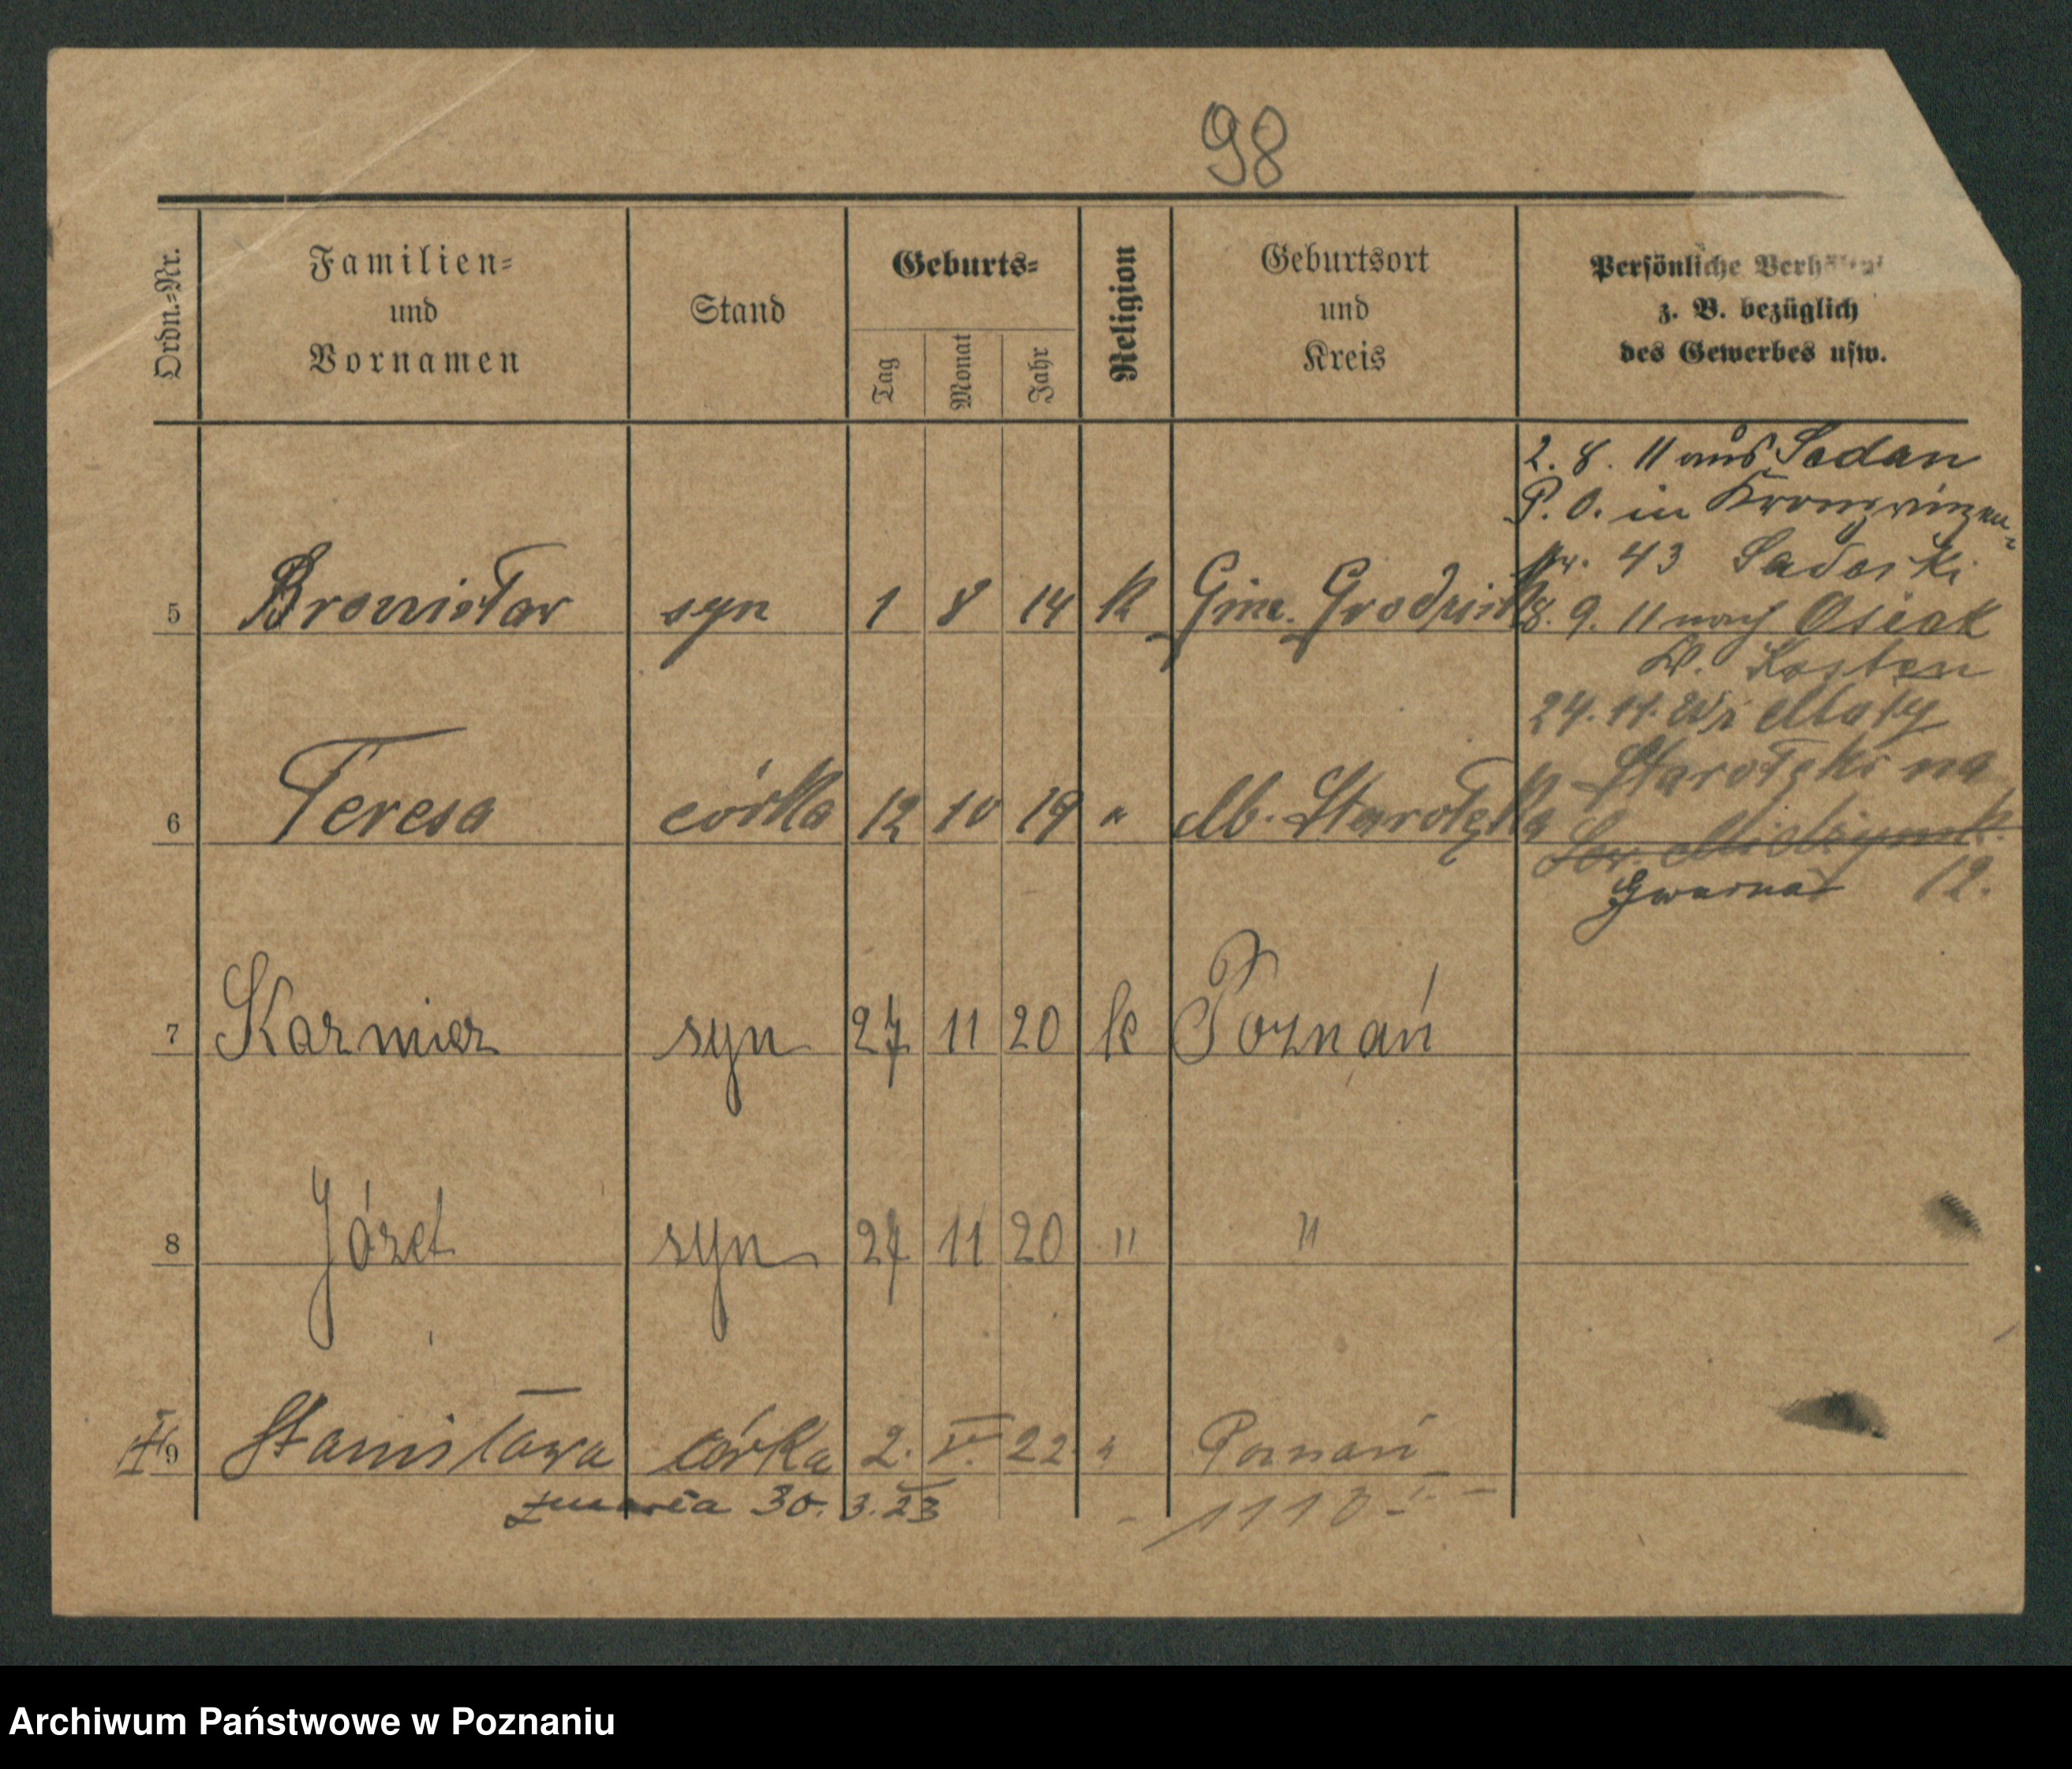 98
Ordn.=Nr.
Familien=
und
Vornamen
Stand
Geburts=
Tag
Monat
Jahr
Religion
Geburtsort
und
Kreis
Persönliche
z. B. bezüglich
des Gewerbes usw.
2. 8. 11 aus Sedan
P. O. in Kronprinzen-
str. 43 Sadoski
8. 9. 11 nach Osiek
Kr. Kosten
5 Bronisław syn 1 8 14 k Gim. Grodzisk
24. 11.
Starołęki na
6 Teresa córka 12 10 19 " M. Starołęka
12.
7 Kazmierz syn 27 11 20 k Poznań
8 Józef syn 27 11 20 " "
9 Stanisława córka 2. V. 22 " Poznań
zmarła 30. 3. 23
1110
Archiwum Państwowe w Poznaniu